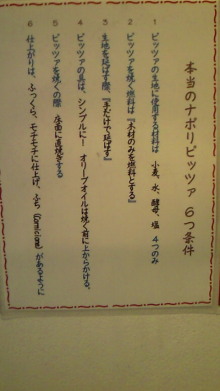 本当のナポリピッツァ 6つ条件
1 ピッツァの生地に使用する材料は 小麦、水、酵母、塩 4つのみ
2 ピッツァを焼く燃料は『木材のみを燃料とする』
3 生地を延ばす際、『手だけで延ばす』
4 ピッツァの具は、シンプルに! オリーブオイルは焼く前に上からかける。
5 ピッツァを焼くの際 床面に直焼きする
6 仕上がりは、ふっくら、モチモチに仕上げ、ふち(cornicione)があるように